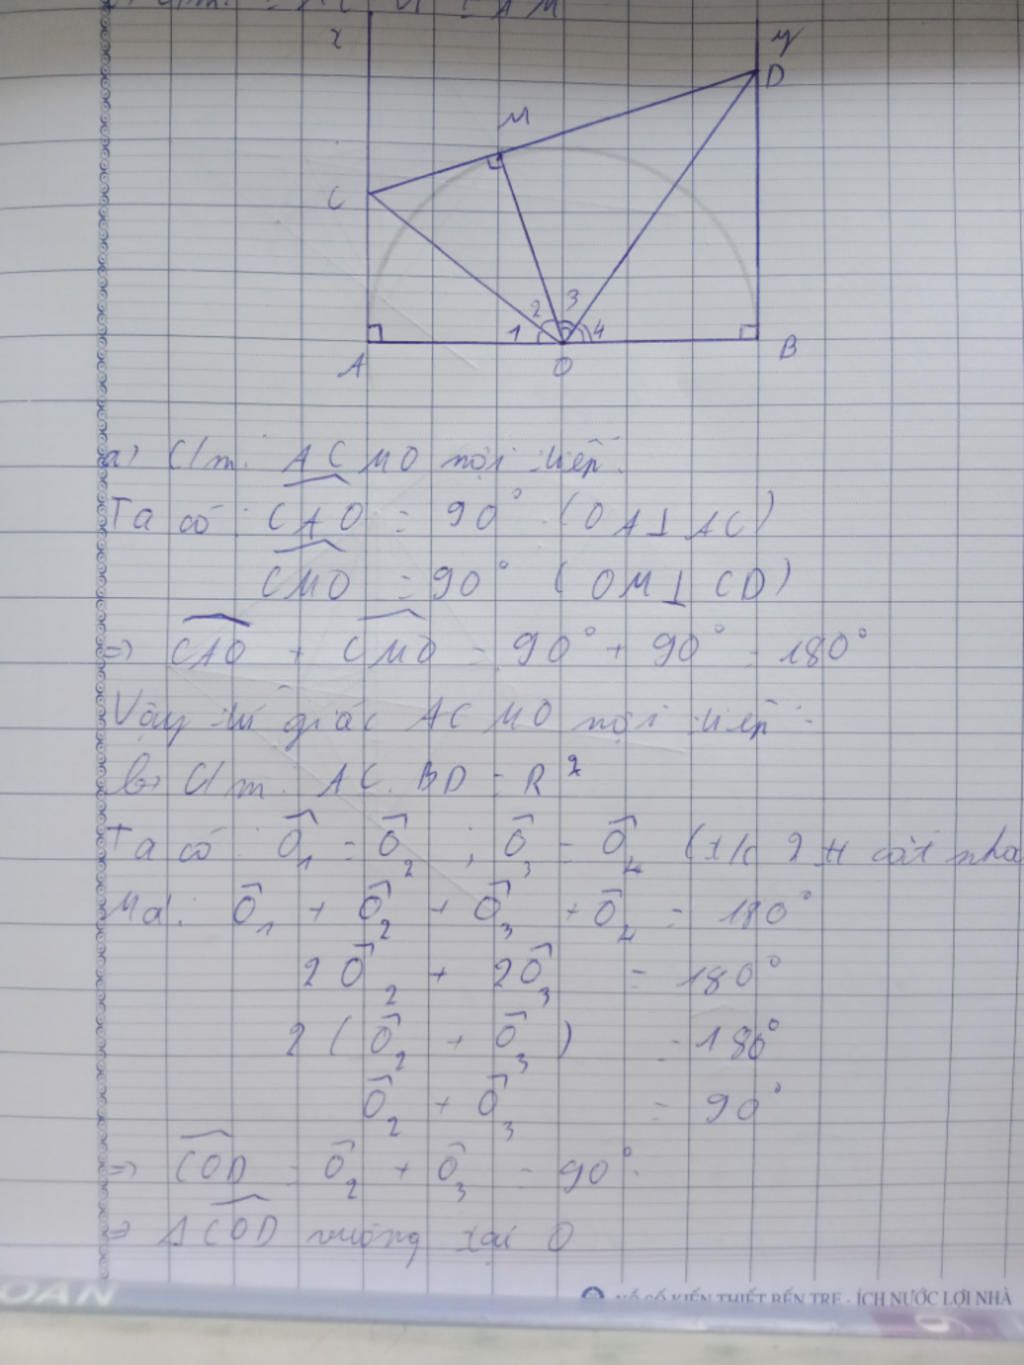 x
y
D
M
C
2 3
1 4
A O B
a) C/m: ACMO nội tiếp.
Ta có: CAO = 90° (OA⊥AC)
CMO = 90° (OM⊥CD)
=> CAO + CMO = 90° + 90° = 180°
Vậy tứ giác ACMO nội tiếp.
b) C/m: AC.BD = R²
Ta có: Ô₁ = Ô₂ ; Ô₃ = Ô₄ (t/c 2 tt cắt nha
Mà: Ô₁ + Ô₂ + Ô₃ + Ô₄ = 180°
2Ô₂ + 2Ô₃ = 180°
2(Ô₂ + Ô₃) = 180°
Ô₂ + Ô₃ = 90°
=> COD = Ô₂ + Ô₃ = 90°.
=> ΔCOD vuông tại O
OÁN
XỔ SỐ KIẾN THIẾT BẾN TRE - ÍCH NƯỚC LỢI NHÀ